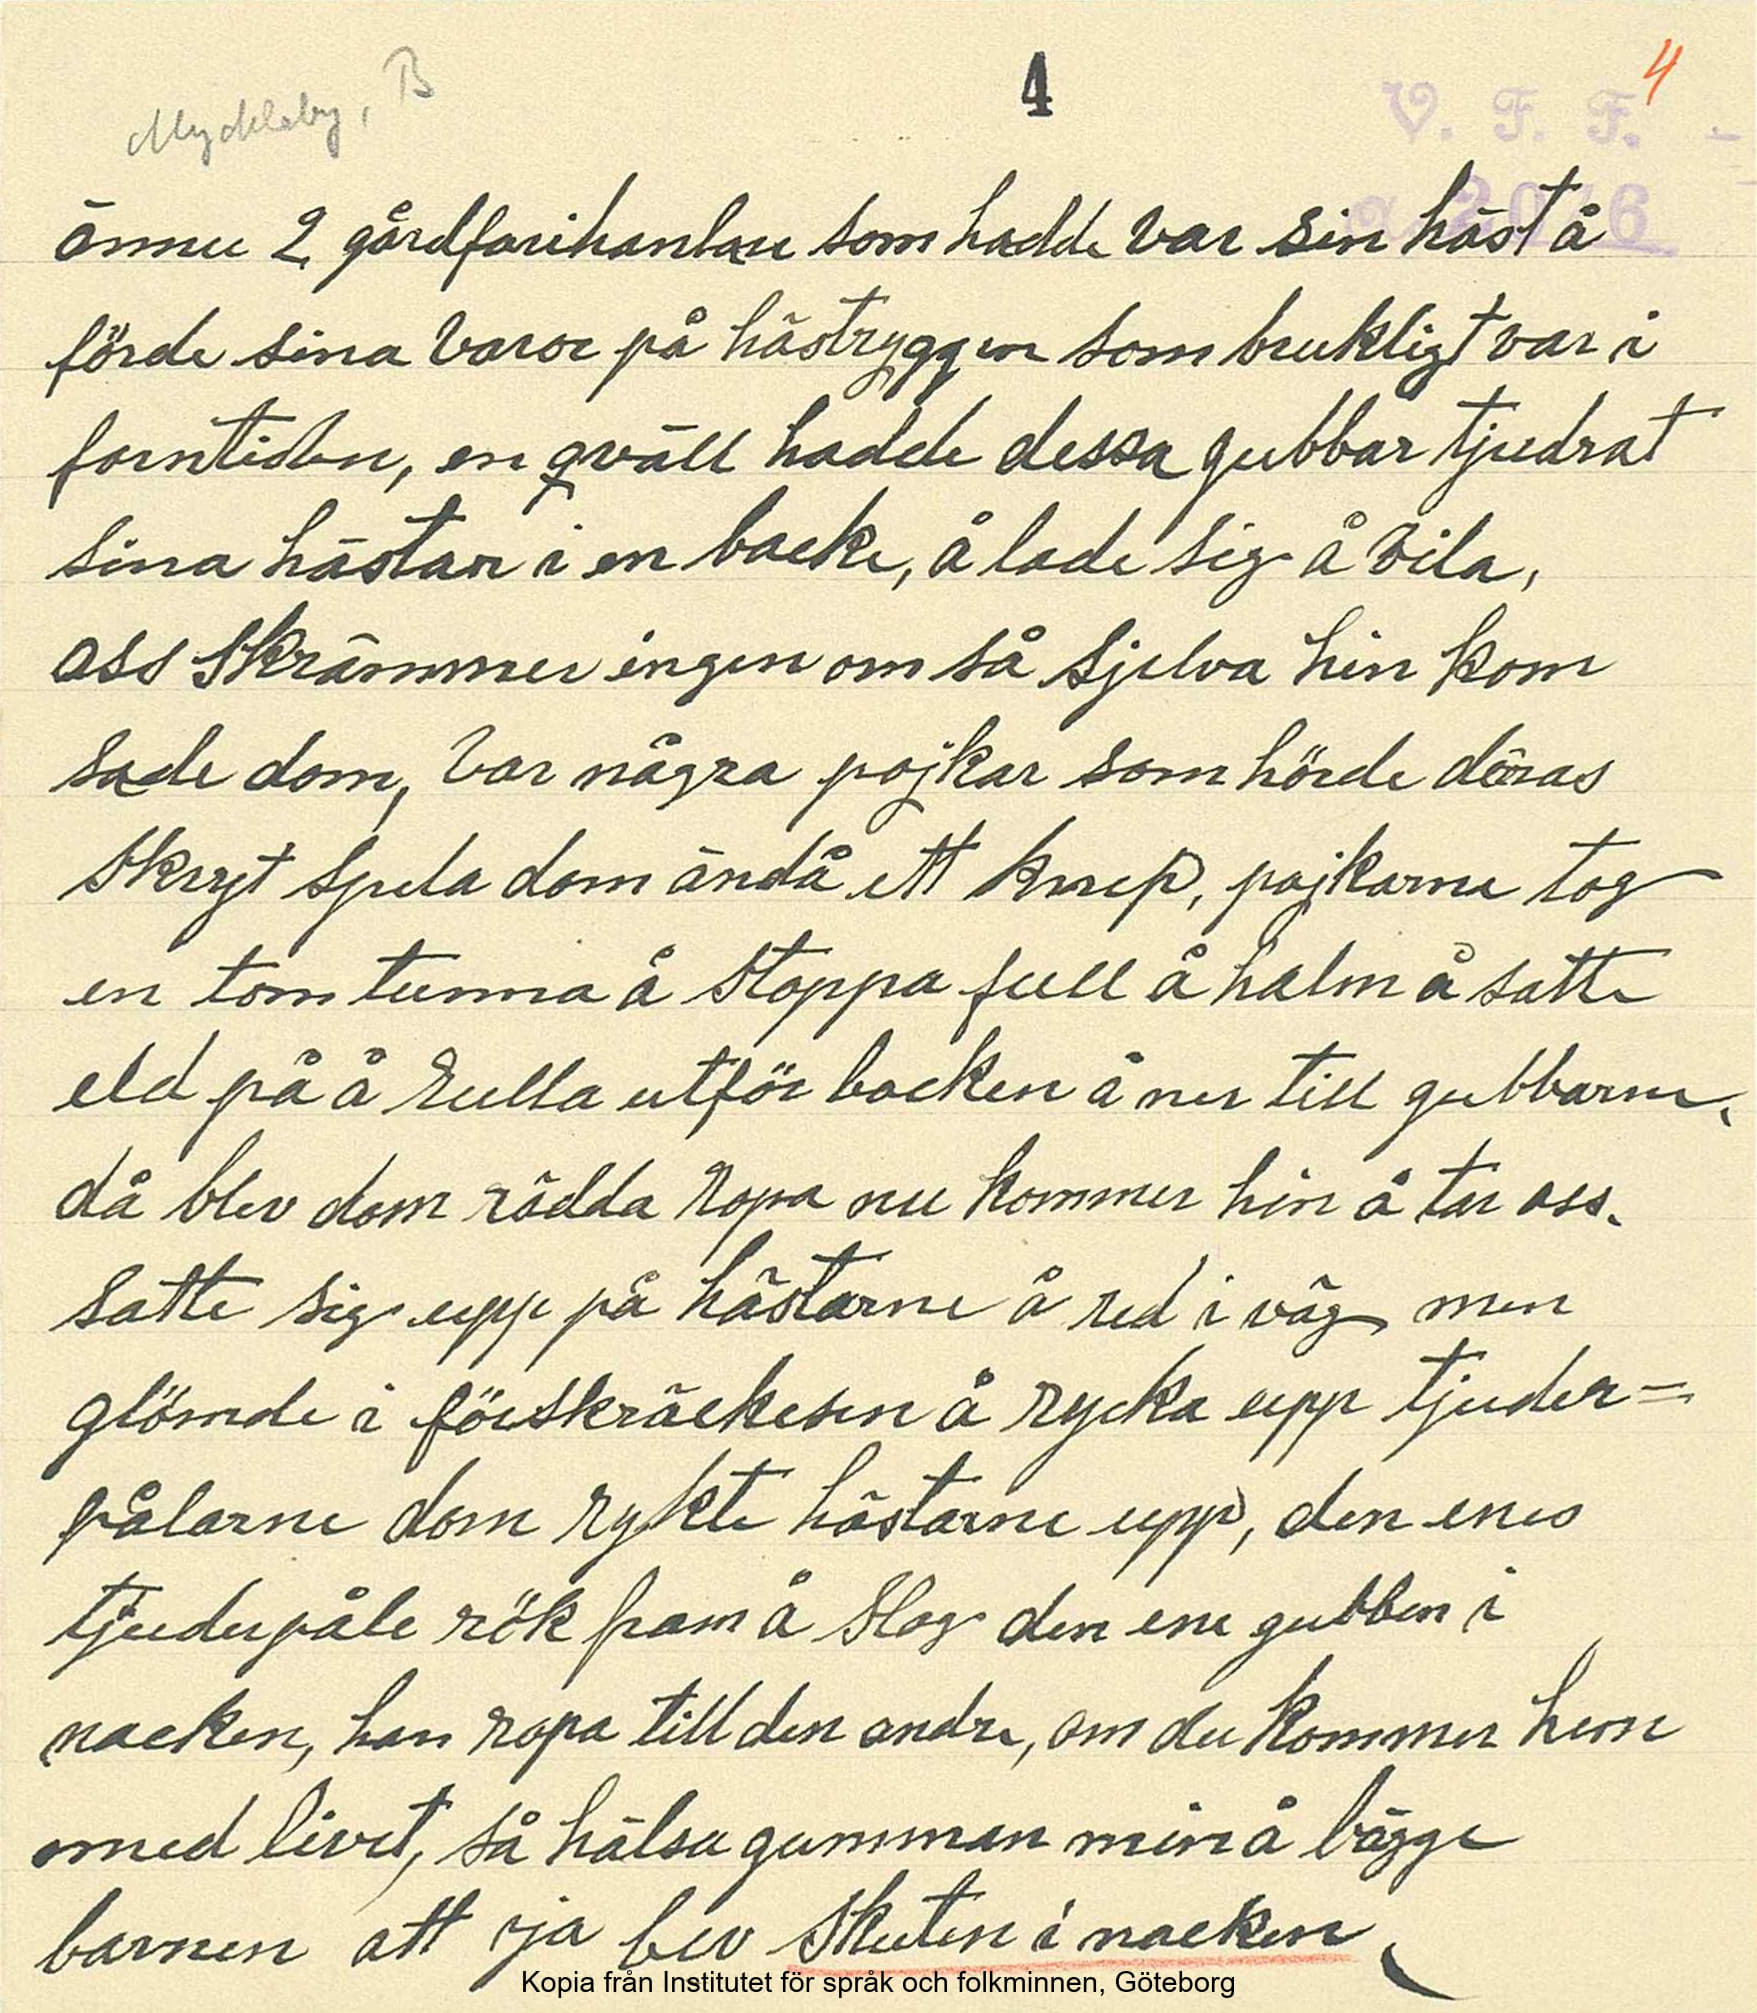 Myckleby, B
4
4
V. F. F.
2076
ännu 2 gårdfarihanlare som hadde var sin häst å
förde sina varor på hästryggen som brukligt var i
forntiden, en qväll hadde dessa gubbar tjudrat
sina hästar i en backe, å lade sig å vila,
oss skrämmer ingen om så sjelva hin kom
sade dom, var några pojkar som hörde döras
skryt spela dom ändå ett knep, pojkarne tog
en tom tunna å stoppa full å halm å satte
eld på å rulla utför backen å ner till gubbarne,
då blev dom rädda ropa nu kommer hin å tar oss.
satte sig upp på hästarne å red i väg men
glömde i förskräckesen å rycka upp tjuder=
pålarne dom rykte hästarne upp, den enes
tjuderpåle rök fram å slog den ene gubben i
nacken, han ropa till den andre, om du kommer hem
med livet, så hälsa gumman min å bägge
barnen att ja blev skuten i nacken
Kopia från Institutet för språk och folkminnen, Göteborg